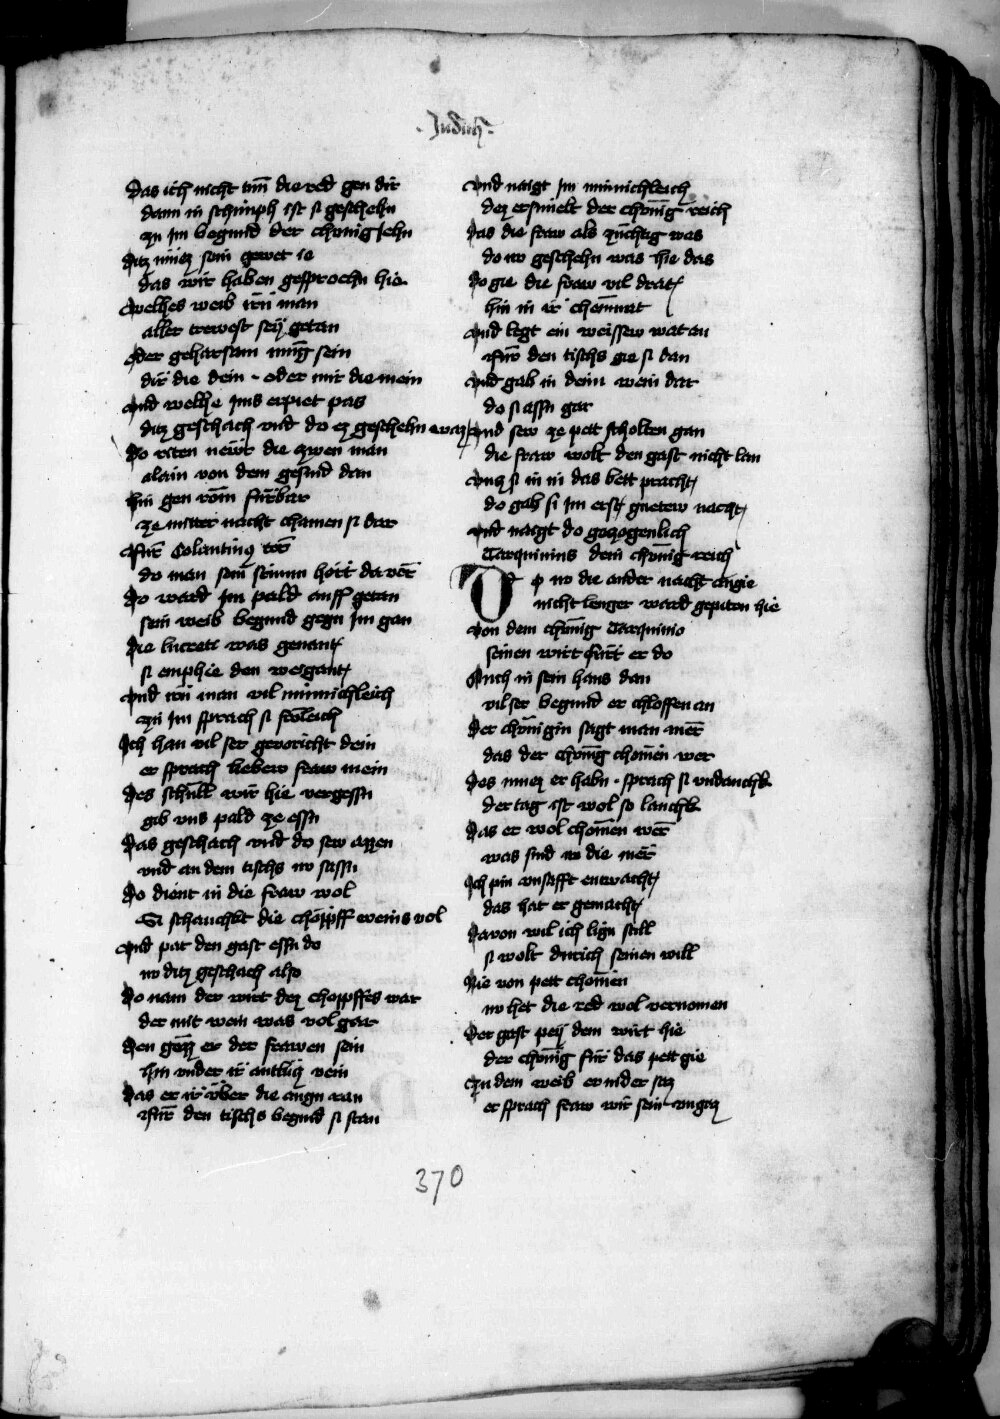 Judith
Das ich nicht tuͤn die red gen dir
dann in schimph ist si geschehn
zu im begund der chunig Jehn
Ditz muez sein gewet ie
das wir haben gesprochn hie
Welhes weib irn man
aller trewest seÿ getan
Oder gehorsam mug sein
dir die dein · oder mir die mein
Und welhe Jms erpiet pas
ditz geschach vnd do ez geschehn waz
Do riten newr die zwen man
alain von dem gesind dan
Hin gen rom fürbar
ze mitter nacht chamen si dar
Für Colantinus tor
do man sein stimm hört da vor
Do ward Im pald auff getan
sein weib begund gegn Im gan
Die lucreti was genant
si emphie den weigant
Und irn man vil minnichleich
zu Im sprach si froleich
Ich han vil ser gevoricht dein
er sprach liebew fraw mein
Des schull wir hie vergessn
gib vns pald ze essn
Das geschach vnd do sew azzen
vnd an dem tischs nv sassn
Do dient in die fraw wol
Si schanckt die chöpff weins vol
Und pat den gast essn do
nv ditz geschach also
Do nam der wirt dez chopffes war
der mit wein was vol gar
Den gozz er der frawen sein
hin vnder ir antlutz vein
Das er ir über die augn ran
für den tischs begund si stan
Und naigt Im minnichleich
dez ersmielt der chönig reich
Das die fraw als züchtig was
do nv geschehn was hie das
Do gie die fraw vil drat
hin in ir chemnat
Und legt ein weissew wat an
für den tischs gie si dan
Und gab in dem wein dar
do si assn gar
Und sew ze pett scholten gan
die fraw wolt den gast nicht lan
Untz si in in das bett pracht
do gab si Im erst guetew nacht
Und naigt do gezogenlich
Tarquinius dem chönig reich
Do nv die ander nacht angie
nicht lenger ward gepiten hie
Von dem chünig Tarquinio
seinen wirt fürt er do
Auch in sein haus dan
vil ser begund er chloffen an
Der chönigin sagt man mer
das der chönig chomen wer
Des muez er habn · sprach si vndanckh
der tag ist wol so lanckh
Das er wol chomen wer
was sind nv die mer
Ich pin vnsafft entwacht
das hat er gemacht
Davon wil ich lign still
si wolt durich seinen will
Nie von pett chomen
nv het die red wol vernomen
Der gast peÿ dem wirt hie
der chönig für das pett gie
Zu dem weib er nider saz
er sprach fraw wir sein vngaz
370